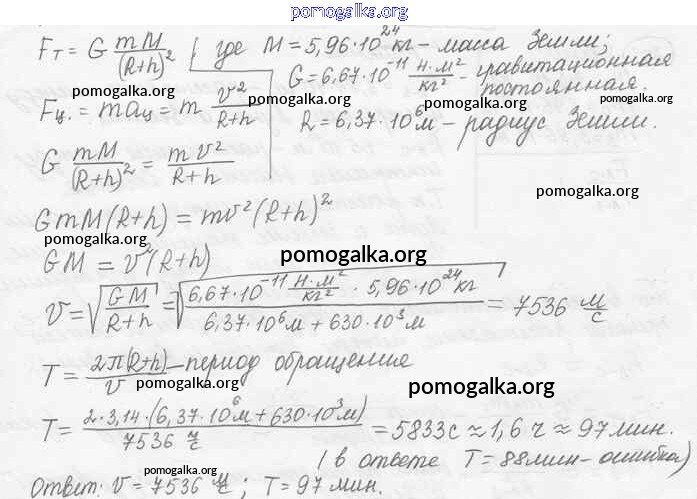 pomogalka.org
F_T = G mM/(R+h)² где M = 5,96·10²⁴ кг – масса Земли;
G = 6,67·10⁻¹¹ Н·м²/кг² – гравитационная постоянная.
pomogalka.org
pomogalka.org
pomogalka.org
F_ц. = ma_ц = m v²/(R+h)
R = 6,37·10⁶ м – радиус Земли.
G mM/(R+h)² = mv²/(R+h)
pomogalka.org
GmM(R+h) = mv²(R+h)²
pomogalka.org
GM = v²(R+h)
pomogalka.org
v = √(GM/(R+h)) = √((6,67·10⁻¹¹ Н·м²/кг² · 5,96·10²⁴ кг)/(6,37·10⁶ м + 630·10³ м)) = 7536 м/с
T = 2π(R+h)/v – период обращения
pomogalka.org
pomogalka.org
T = 2·3,14·(6,37·10⁶ м + 630·10³ м)/(7536 м/с) = 5833 с ≈ 1,6 ч ≈ 97 мин.
(в ответе T = 88 мин – ошибка)
pomogalka.org
Ответ: v = 7536 м/с; T = 97 мин.